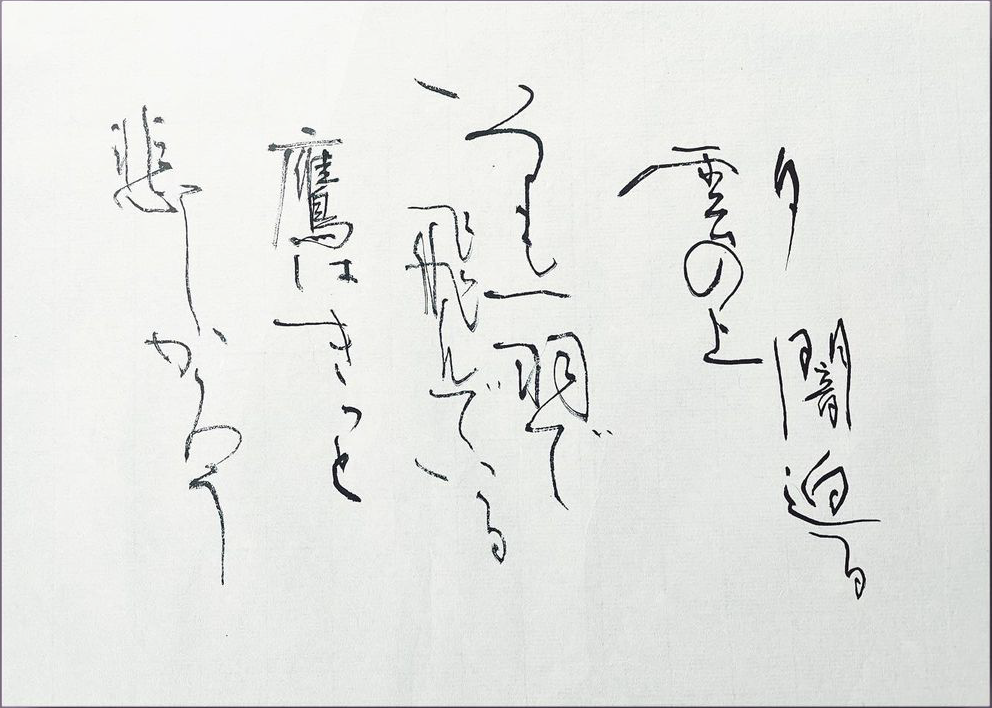 夕闇迫る
雲の上
いつも一羽で
飛んでいる
鷹はきっと
悲しかろう